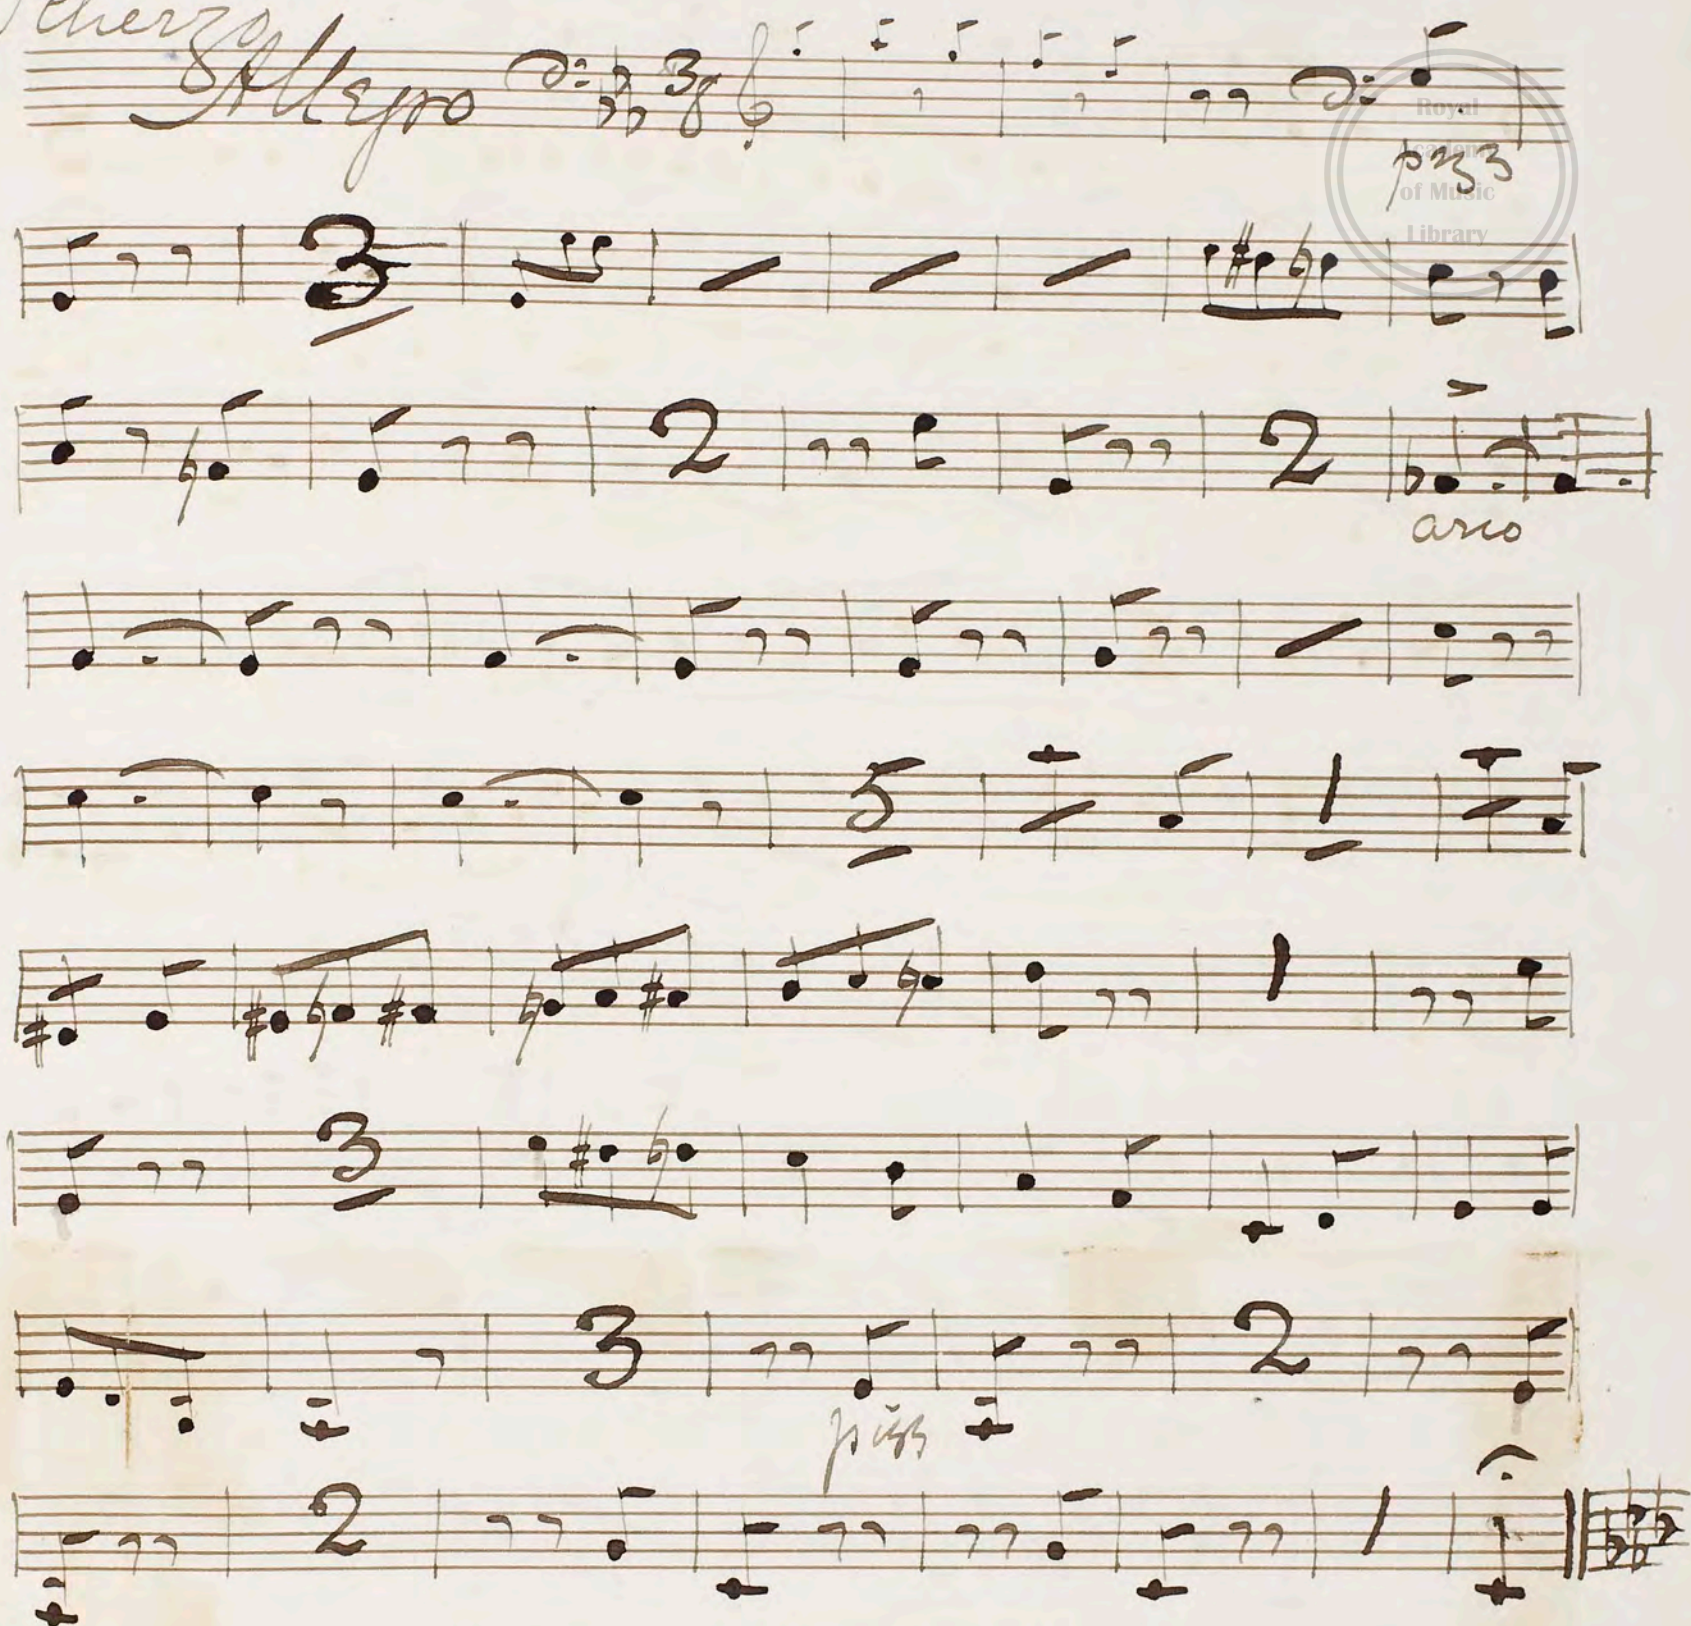 Scherzo
Allegro 3 8
Royal
Academy
of Music
Library
pizz
3
2 2
arco
5 1
1
3
3 2
pizz
2 1